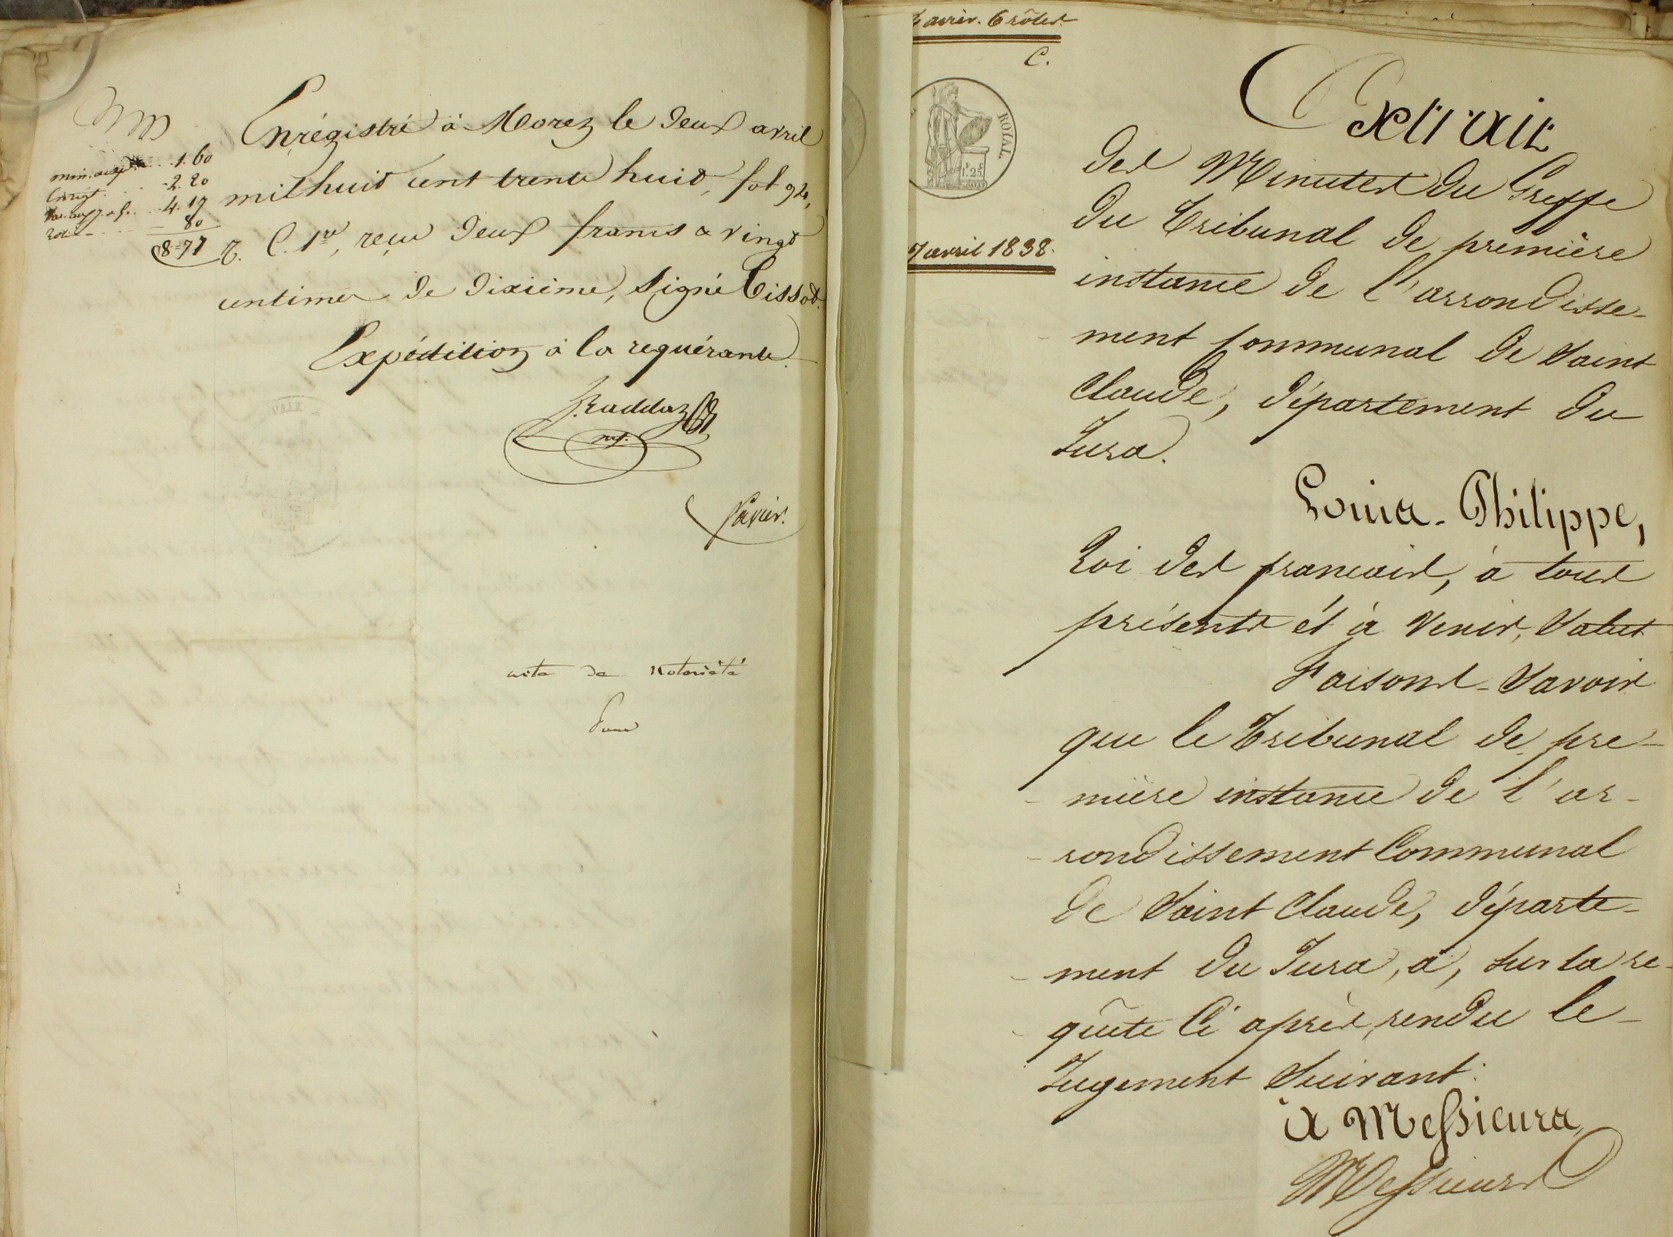 Enrégistré à Morez le deux avril
mil huit cent trente huit, fol 92,
r. C. 1re, reçu deux francs & vingt
centimes de dixième, signé Tissot.
Expédition à la requérante.
1.60
2.20
4.17
80
8.77
Javier.
acte de Notoriété
Pour
6 rôles.
C.
ROYAL
7 avril 1838.
Extrait
des Minutes du Greffe
du Tribunal de première
instance de l'arrondisse-
ment communal de Saint
Claude, département du
Jura.
Louis-Philippe,
Roi des francais, à tous
présents et à venir, Salut
Faisons-Savoir
que le Tribunal de pre-
mière instance de l'ar-
rondissement Communal
de Saint Claude, départe-
ment du Jura, a, sur la re-
quête ci après, rendu le
Jugement Suivant:
A Messieurs
Messieurs